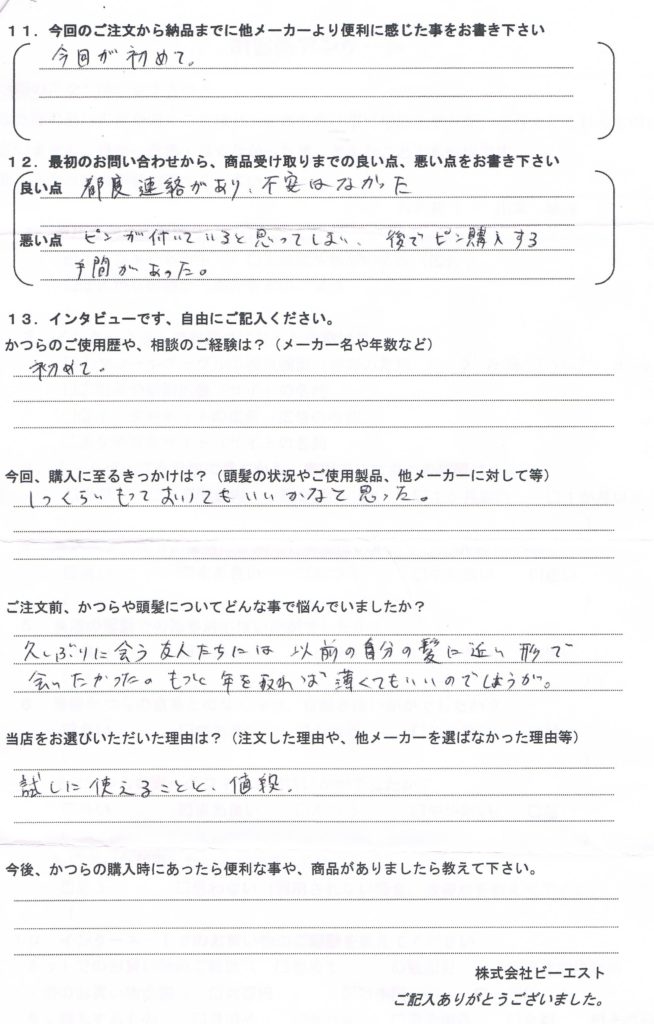 １１．今回のご注文から納品までに他メーカーより便利に感じた事をお書き下さい
今回が初めて。
１２．最初のお問い合わせから、商品受け取りまでの良い点、悪い点をお書き下さい
良い点 都度連絡があり、不安はなかった
悪い点 ピンが付いていると思ってしまい、後でピン購入する
手間があった。
１３．インタビューです、自由にご記入ください。
かつらのご使用歴や、相談のご経験は？（メーカー名や年数など）
初めて。
今回、購入に至るきっかけは？（頭髪の状況やご使用製品、他メーカーに対して等）
1つくらいもっておいてもいいかなと思った。
ご注文前、かつらや頭髪についてどんな事で悩んでいましたか？
久しぶりに会う友人たちには以前の自分の髪に近い形で
会いたかった。もっと年を取れば薄くてもいいのでしょうが。
当店をお選びいただいた理由は？（注文した理由や、他メーカーを選ばなかった理由等）
試しに使えることと、値段。
今後、かつらの購入時にあったら便利な事や、商品がありましたら教えて下さい。
株式会社ビーエスト
ご記入ありがとうございました。